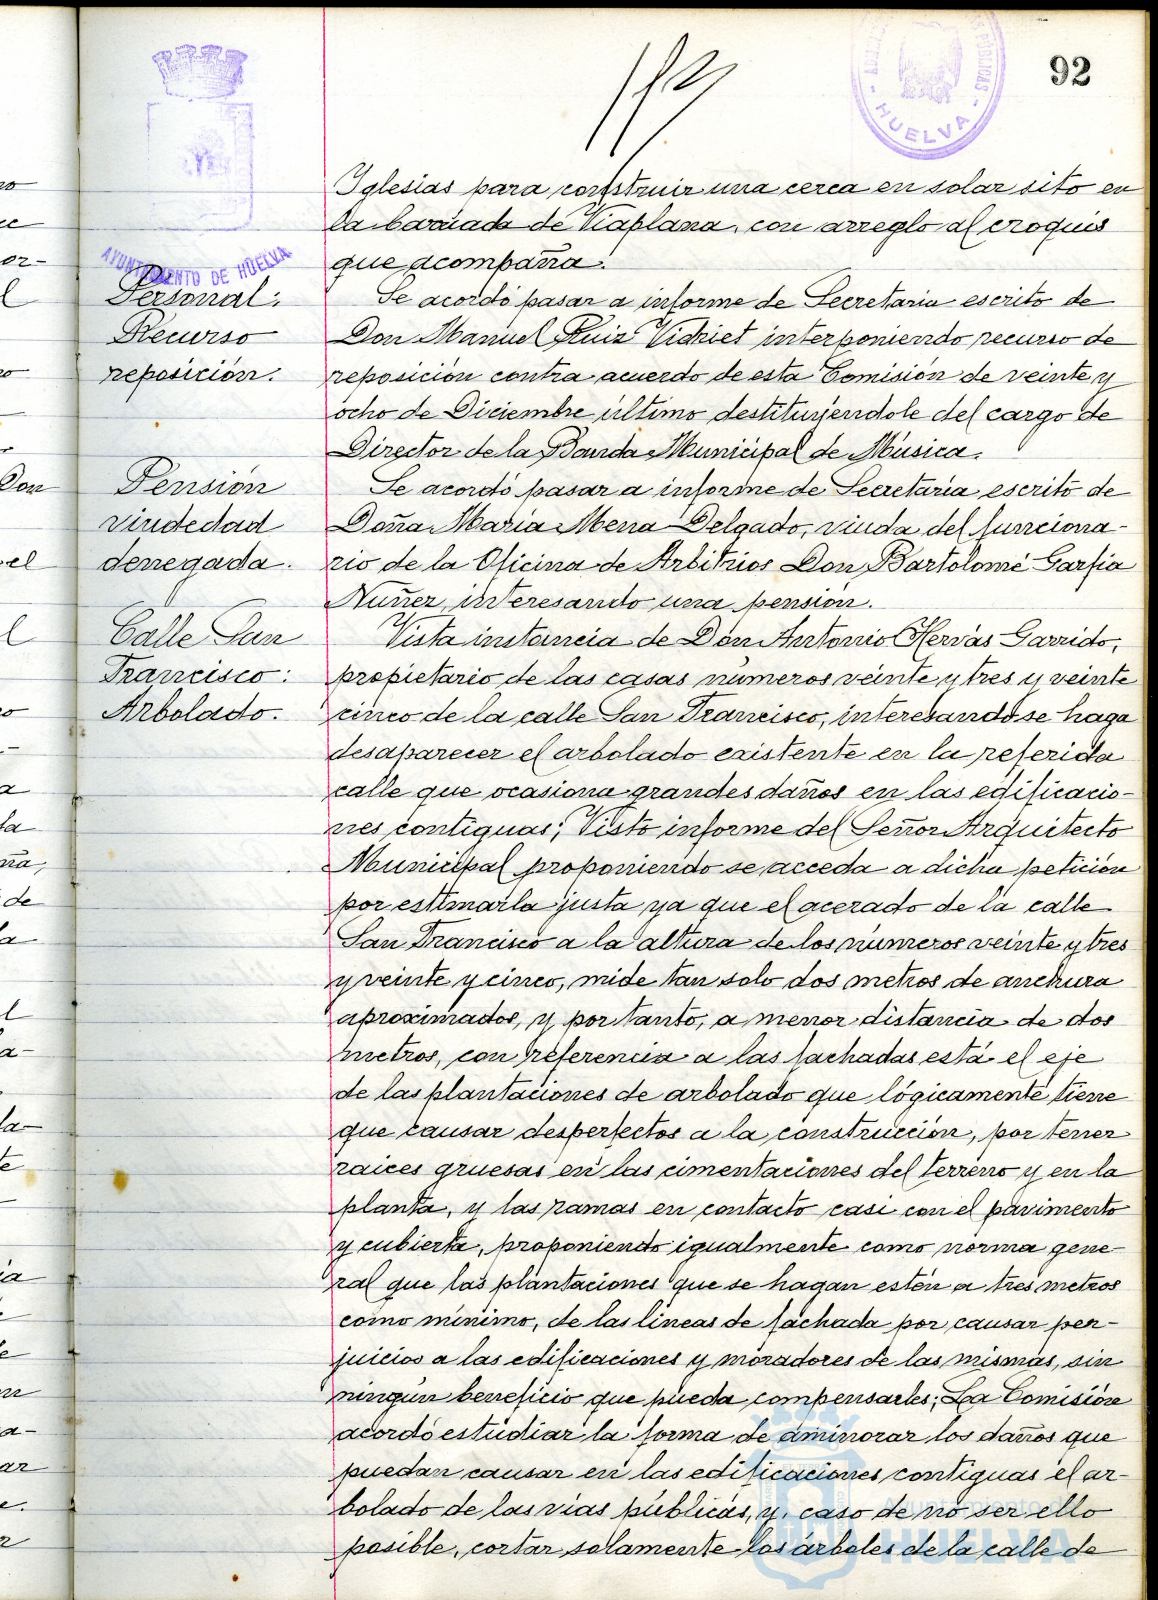 92
AYUNTAMIENTO DE HUELVA
HUELVA
Iglesias para construir una cerca en solar sito en
la barriada de Viaplana, con arreglo al croquis
que acompaña.
Personal:
Recurso
reposición.
Se acordó pasar a informe de Secretaria escrito de
Don Manuel Ruiz Vidriet interponiendo recurso de
reposición contra acuerdo de esta Comisión de veinte y
ocho de Diciembre último destituyéndole del cargo de
Director de la Banda Municipal de Música.
Pensión
viudedad
denegada.
Se acordó pasar a informe de Secretaría escrito de
Doña María Mena Delgado, viuda del funciona-
rio de la Oficina de Arbitrios Don Bartolomé Garfia
Nuñez, interesando una pensión.
Calle San
Francisco:
Arbolado.
Vista instancia de Don Antonio Hervás Garrido,
propietario de las casas números veinte y tres y veinte
cinco de la calle San Francisco, interesando se haga
desaparecer el arbolado existente en la referida
calle que ocasiona grandes daños en las edificacio-
nes contiguas; Visto informe del Señor Arquitecto
Municipal proponiendo se acceda a dicha petición
por estimarla justa ya que el acerado de la calle
San Francisco a la altura de los números veinte y tres
y veinte y cinco, mide tan solo dos metros de anchura
aproximados, y por tanto, a menor distancia de dos
metros, con referencia a las fachadas está el eje
de las plantaciones de arbolado que lógicamente tiene
que causar desperfectos a la construcción, por tener
raices gruesas en las cimentaciones del terreno y en la
planta, y las ramas en contacto casi con el pavimento
y cubierta, proponiendo igualmente como norma gene-
ral que las plantaciones que se hagan estén a tres metros
como mínimo, de las lineas de fachada por causar per-
juicios a las edificaciones y moradores de las mismas, sin
ningún beneficio que pueda compensarles; La Comisión
acordó estudiar la forma de aminorar los daños que
puedan causar en las edificaciones contiguas el ar-
bolado de las vías públicas, y, caso de no ser ello
posible, cortar solamente los árboles de la calle de
Ayuntamiento de
HUELVA